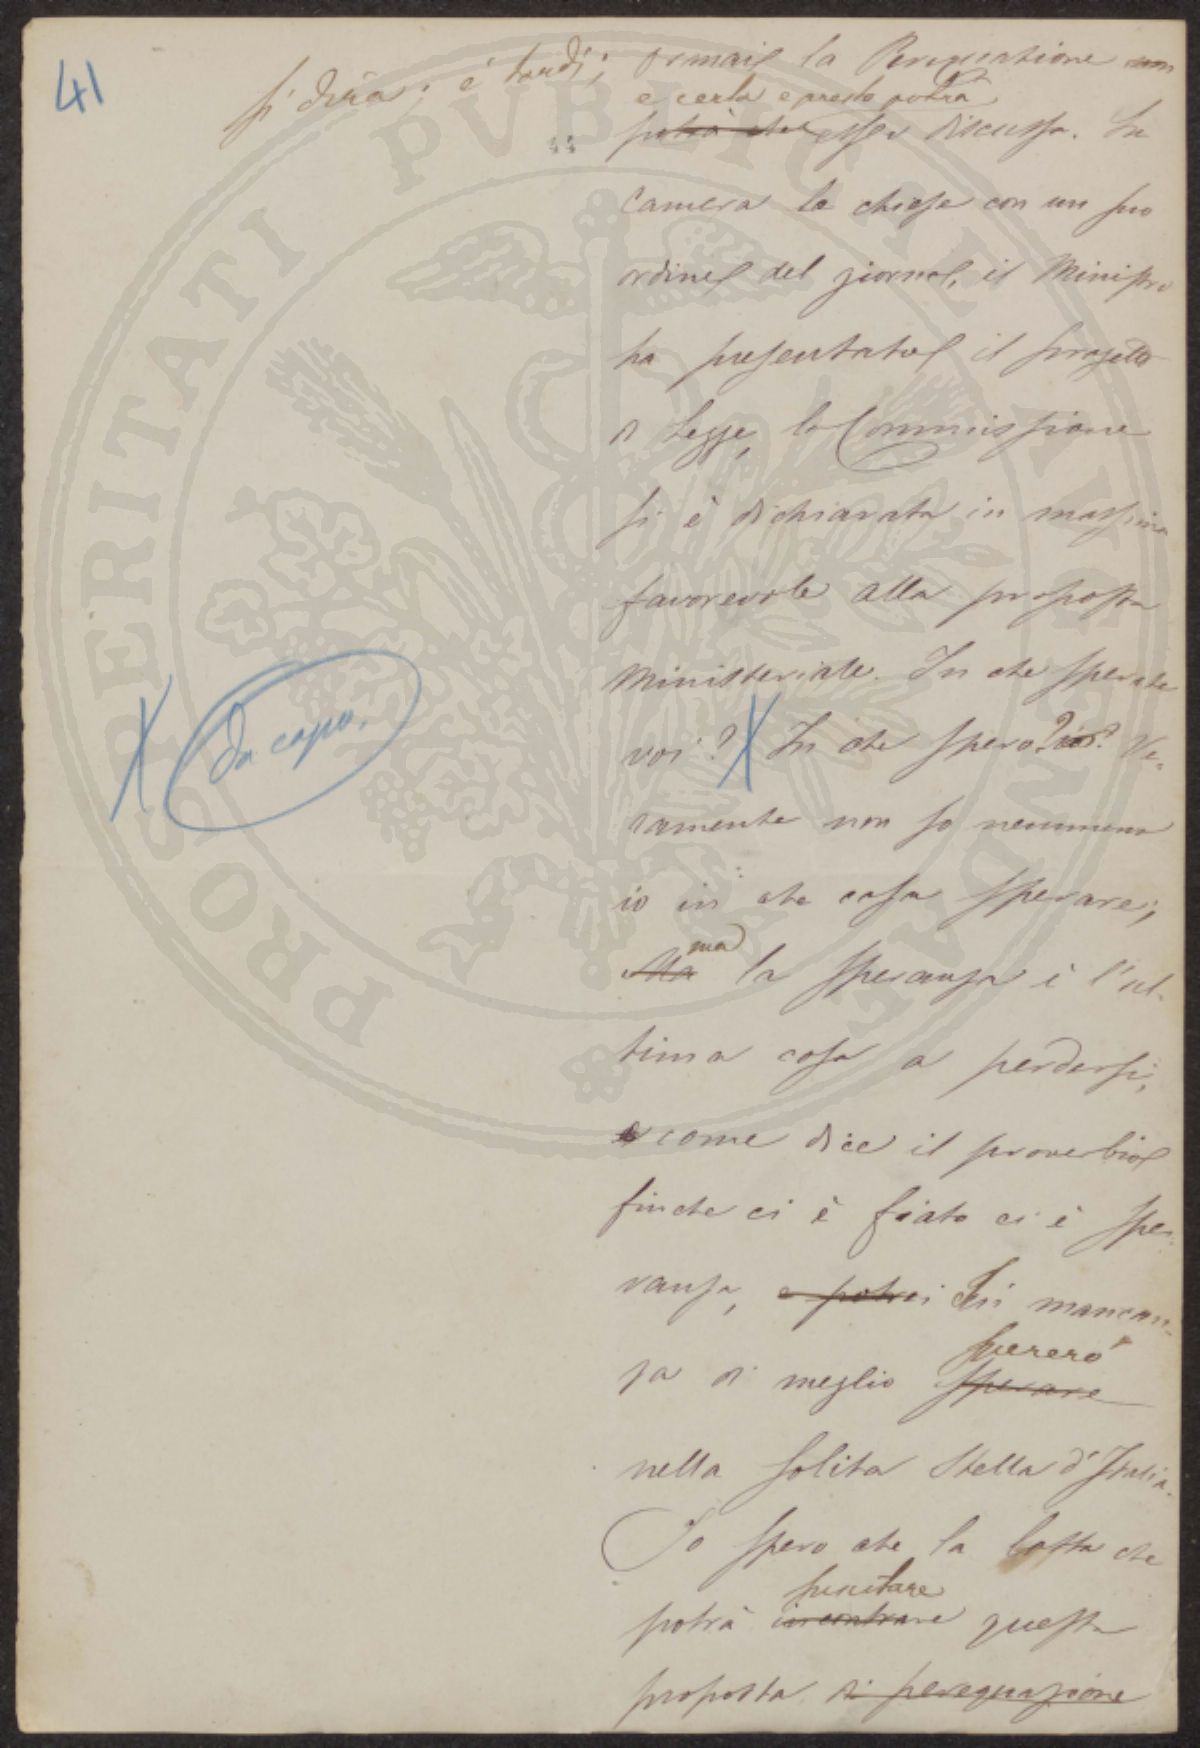 41
si dirà; è tardi;
ormai la Perequazione non
è certa e presto potrà
potrà che esser discussa. La
Camera la chiese con un suo
ordine del giorno, il Ministro
ha presentato il progetto
di Legge, la Commissione
si è dichiarata in massima
favorevole alla proposta
Ministeriale. In che sperate
voi? X In che spero? Ve=
X da capo.
ramente non so nemmeno
io in che cosa sperare;
ma
Ma la speranza è l'ul-
tima cosa a perdersi,
e come dice il proverbio
finche ci è fiato ci è spe-
ranza, e potrei In mancan-
za di meglio sperare
spererò
nella solita Stella d'Italia.
Io spero che la lotta che
suscitare
potrà incontrare questa
proposta di perequazione
PROSPERITATI PVBLICAE AVGENDAE